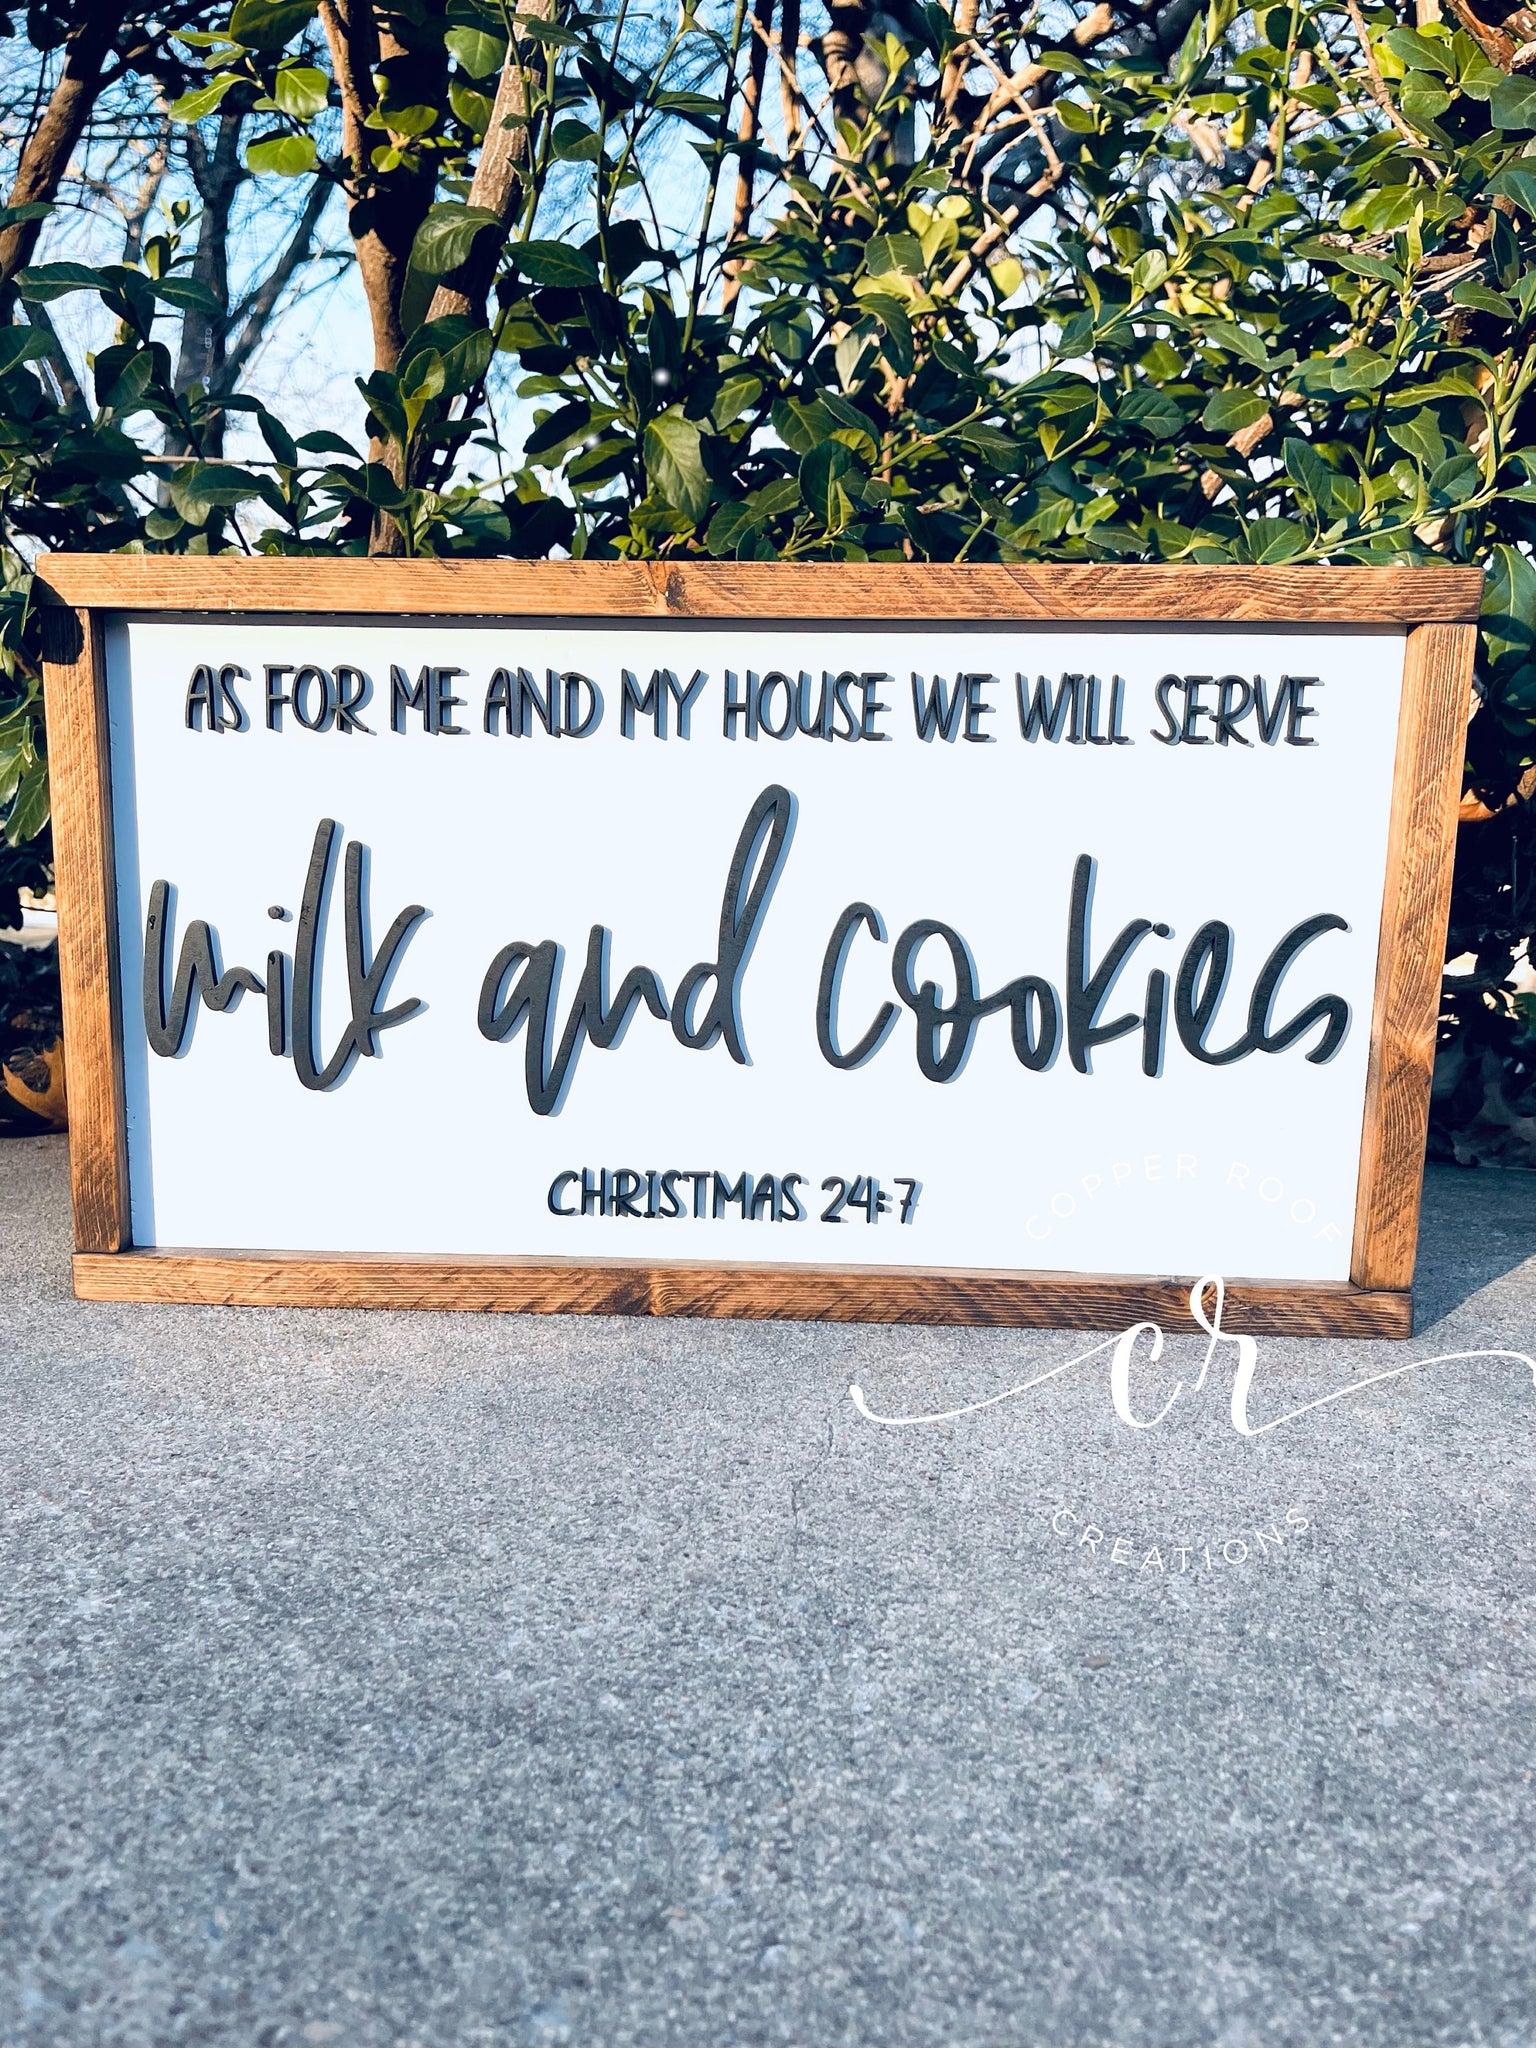 AS FOR ME AND MY HOUSE WE WILL SERVE
milk and cookies
CHRISTMAS 24:7
COPPER ROOF
cr
CREATIONS